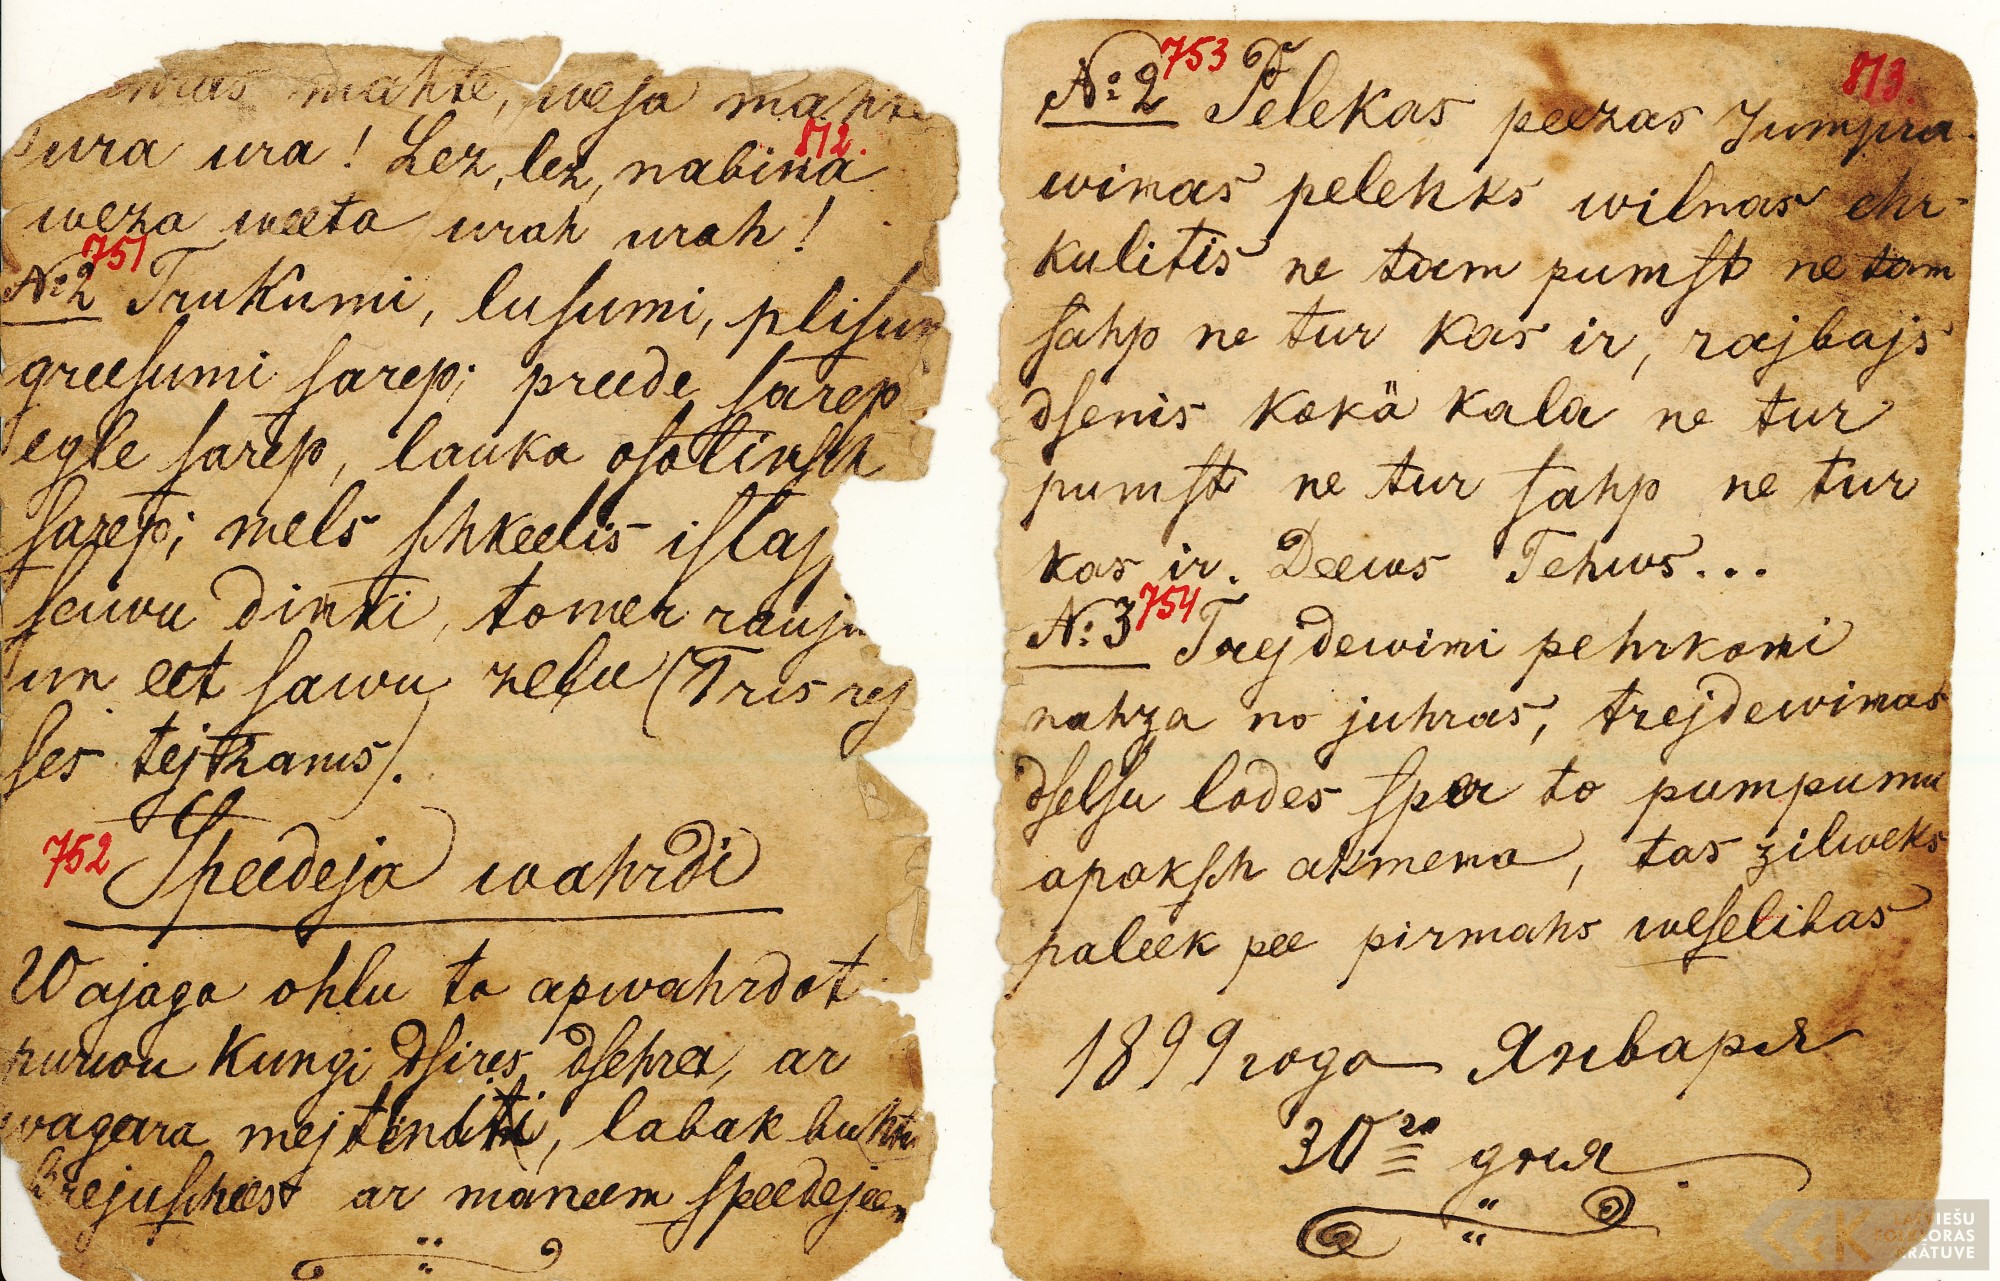 mahte, weja mahte
ura ura! Lez, lez, nabina 872.
weza weeta urah urah!
№ 2 751 Trukumi, lusumi, plisum
greesumi sarep; preede sarep
egle sarep, lauka osolinsch
sarep; mels schkeelis islaj
sawu dimti, tomer rauj
un eet sawu zelu (Tris rej
ses tejkams).
752 Speedeja wahrdi
Wajaga ohlu to apwahrdot
purwu Kungi dsires dsehret, ar
wagara mejtinati, labak buhtu
Brejuscheest ar maneem speedejeem
№ 2 753 Pelekas peezas Jumpra- 873.
wimas pelehks wilnas chr-
kulitis ne tam pumst ne tam
sahp ne tur kas ir, rajbajs
dsenis kokä kala ne tur
pumst ne tur sahp ne tur
kas ir. Deews Tehws...
№ 3 754 Trejdewini pehrkoni
nahza no juhras, trejdewinas
dselsu lodes sper to pumpumu
apaksch akmena, tas zilweks
paleek pee pirmahs weselibas
1899 года Января
30го дня
LATVIEŠU
FOLKLORAS
KRĀTUVE